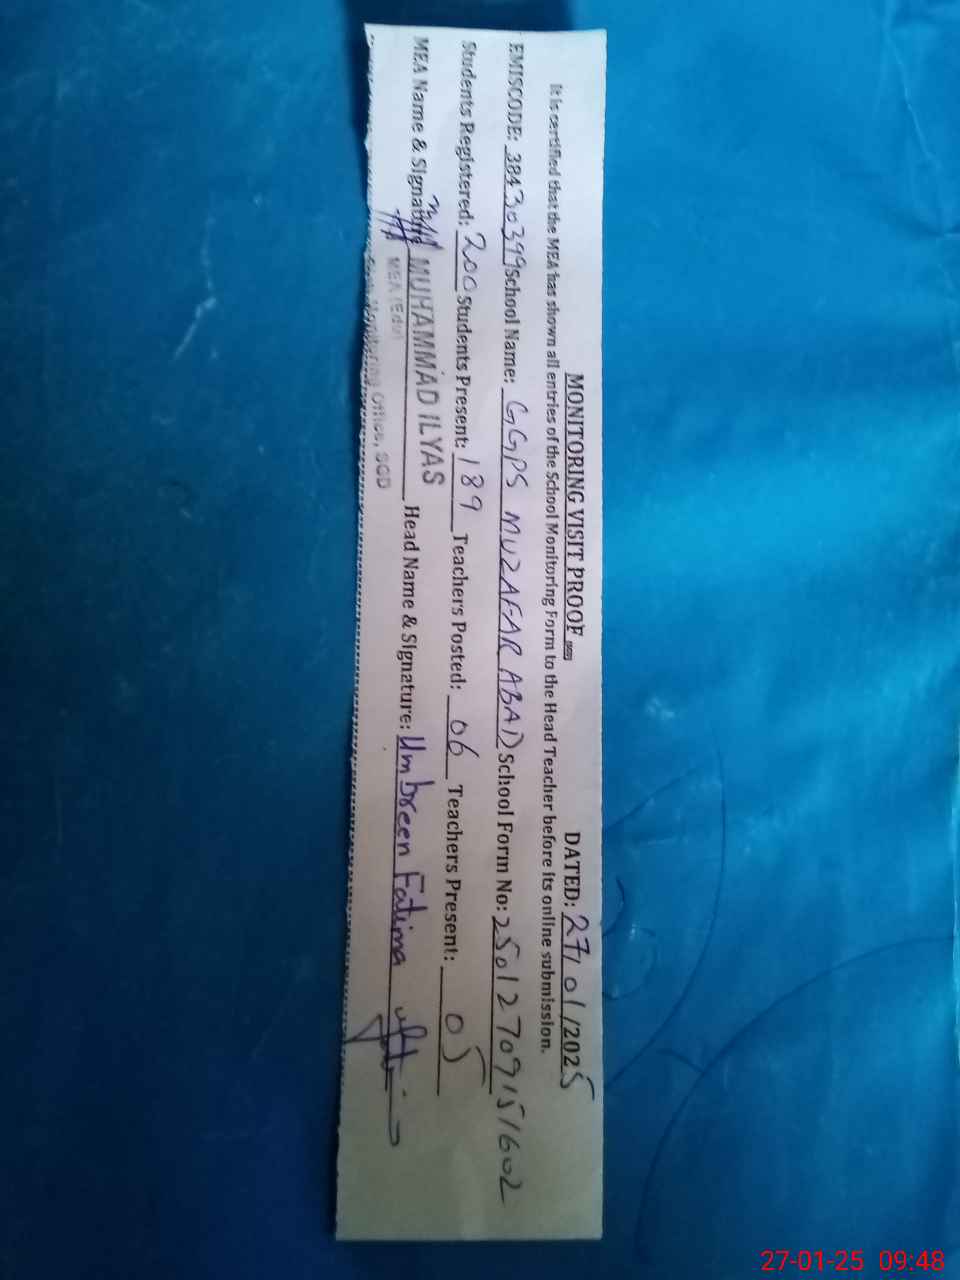 MONITORING VISIT PROOF DATED: 27/01/2025
It is certified that the MEA has shown all entries of the School Monitoring Form to the Head Teacher before its online submission.
EMISCODE: 38430399 School Name: GGPS MUZAFAR ABAD School Form No: 25012709151602
Students Registered: 200 Students Present: 189 Teachers Posted: 06 Teachers Present: 05
MEA Name & Signature MUHAMMAD ILYAS Head Name & Signature: Umbreen Fatima
MEA (Edu)
Monitoring Office, SGD
27-01-25 09:48